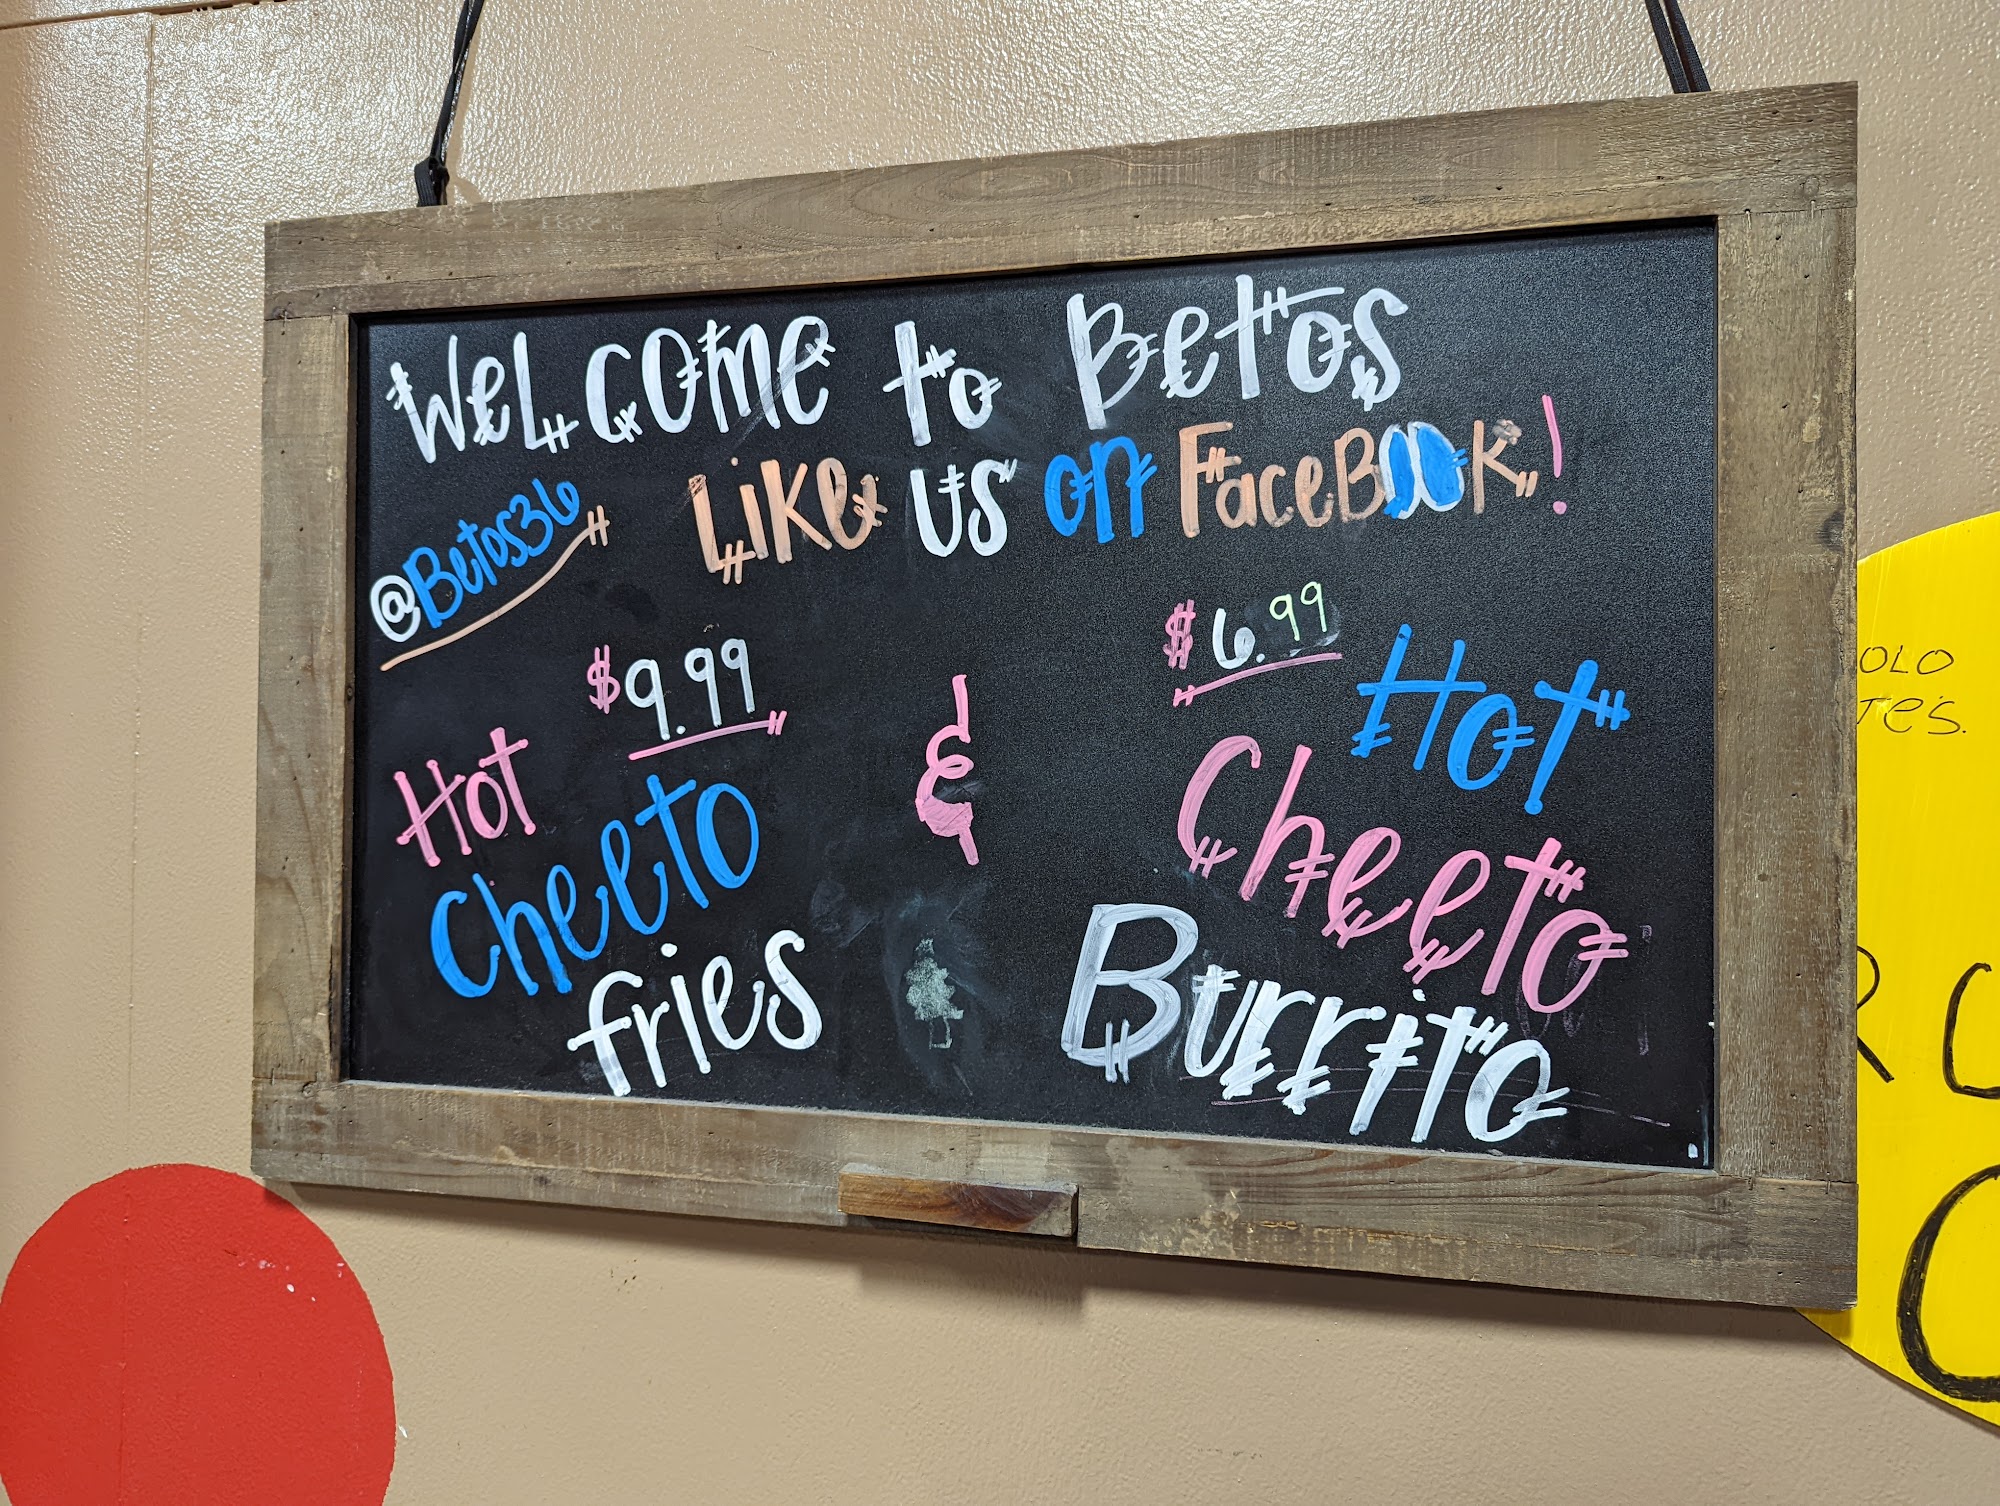 Welcome to Betos
Like us on FaceBook!
@Betos36
$9.99
Hot
Cheeto
fries
&
$6.99
Hot
Cheeto
Burrito